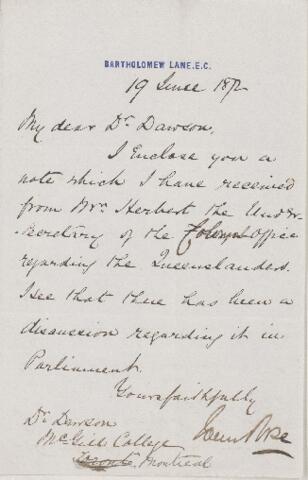 BARTHOLOMEW LANE. E.C.
19 June 1872
My dear Dr Dawson,
I Enclose you a
note which I have received
from Mr. Herbert the Under
Secretary of the Colonial Office
regarding the Queenslanders.
I see that there has been a
discussion regarding it in
Parliament.
Yours faithfully
John Rose
Dr Dawson
McGill College
Toronto, Montreal